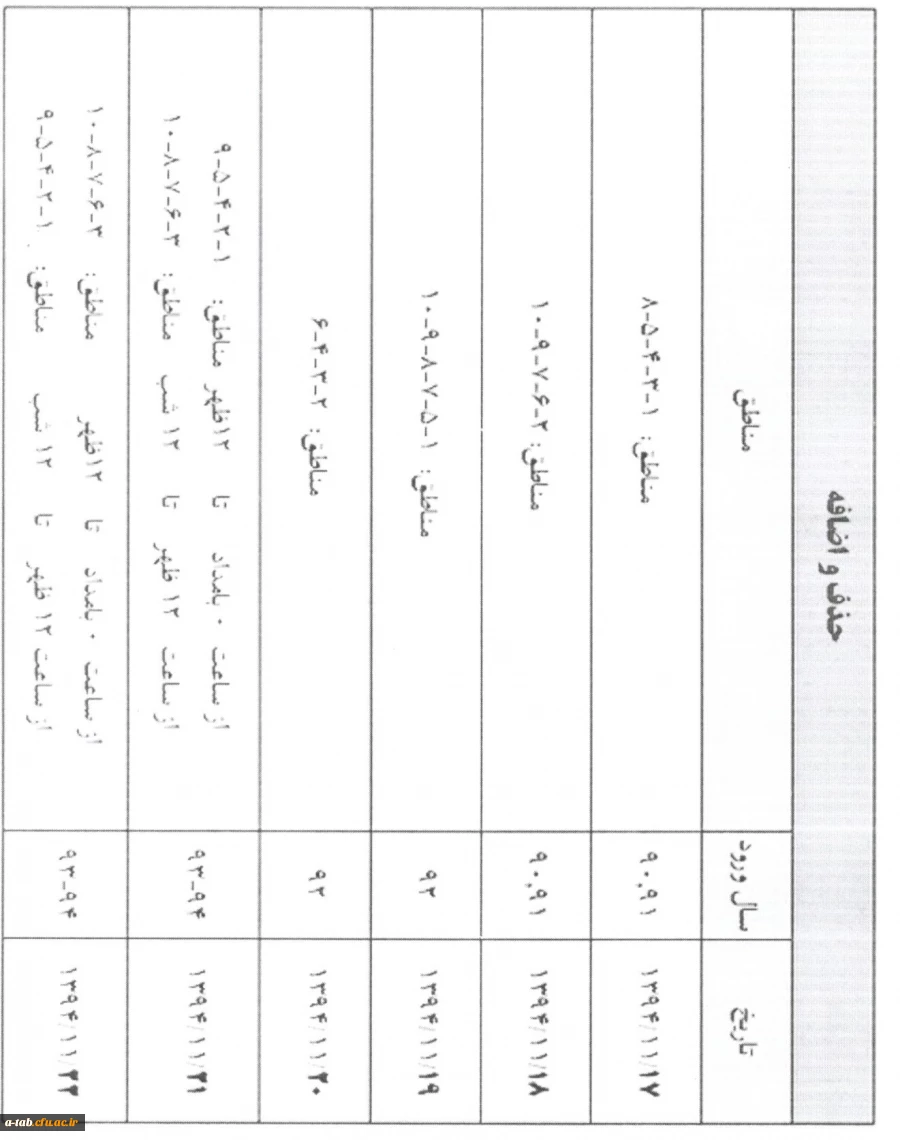 حذف و اضافه
تاریخ سال ورود مناطق
۱۳۹۴/۱۱/۱۷ ۹۰,۹۱ مناطق: ۱-۳-۴-۵-۸
۱۳۹۴/۱۱/۱۸ ۹۰,۹۱ مناطق: ۲-۶-۷-۹-۱۰
۱۳۹۴/۱۱/۱۹ ۹۲ مناطق: ۱-۵-۷-۸-۹-۱۰
۱۳۹۴/۱۱/۲۰ ۹۲ مناطق: ۲-۳-۴-۶
۱۳۹۴/۱۱/۲۱ ۹۳-۹۴ از ساعت ۰ بامداد تا ۱۲ظهر مناطق: ۱-۲-۴-۵-۹
از ساعت ۱۲ ظهر تا ۱۲ شب مناطق: ۳-۶-۷-۸-۱۰
۱۳۹۴/۱۱/۲۲ ۹۳-۹۴ از ساعت ۰ بامداد تا ۱۲ظهر مناطق: ۳-۶-۷-۸-۱۰
از ساعت ۱۲ ظهر تا ۱۲ شب مناطق: ۱-۲-۴-۵-۹
a-tab.cfu.ac.ir